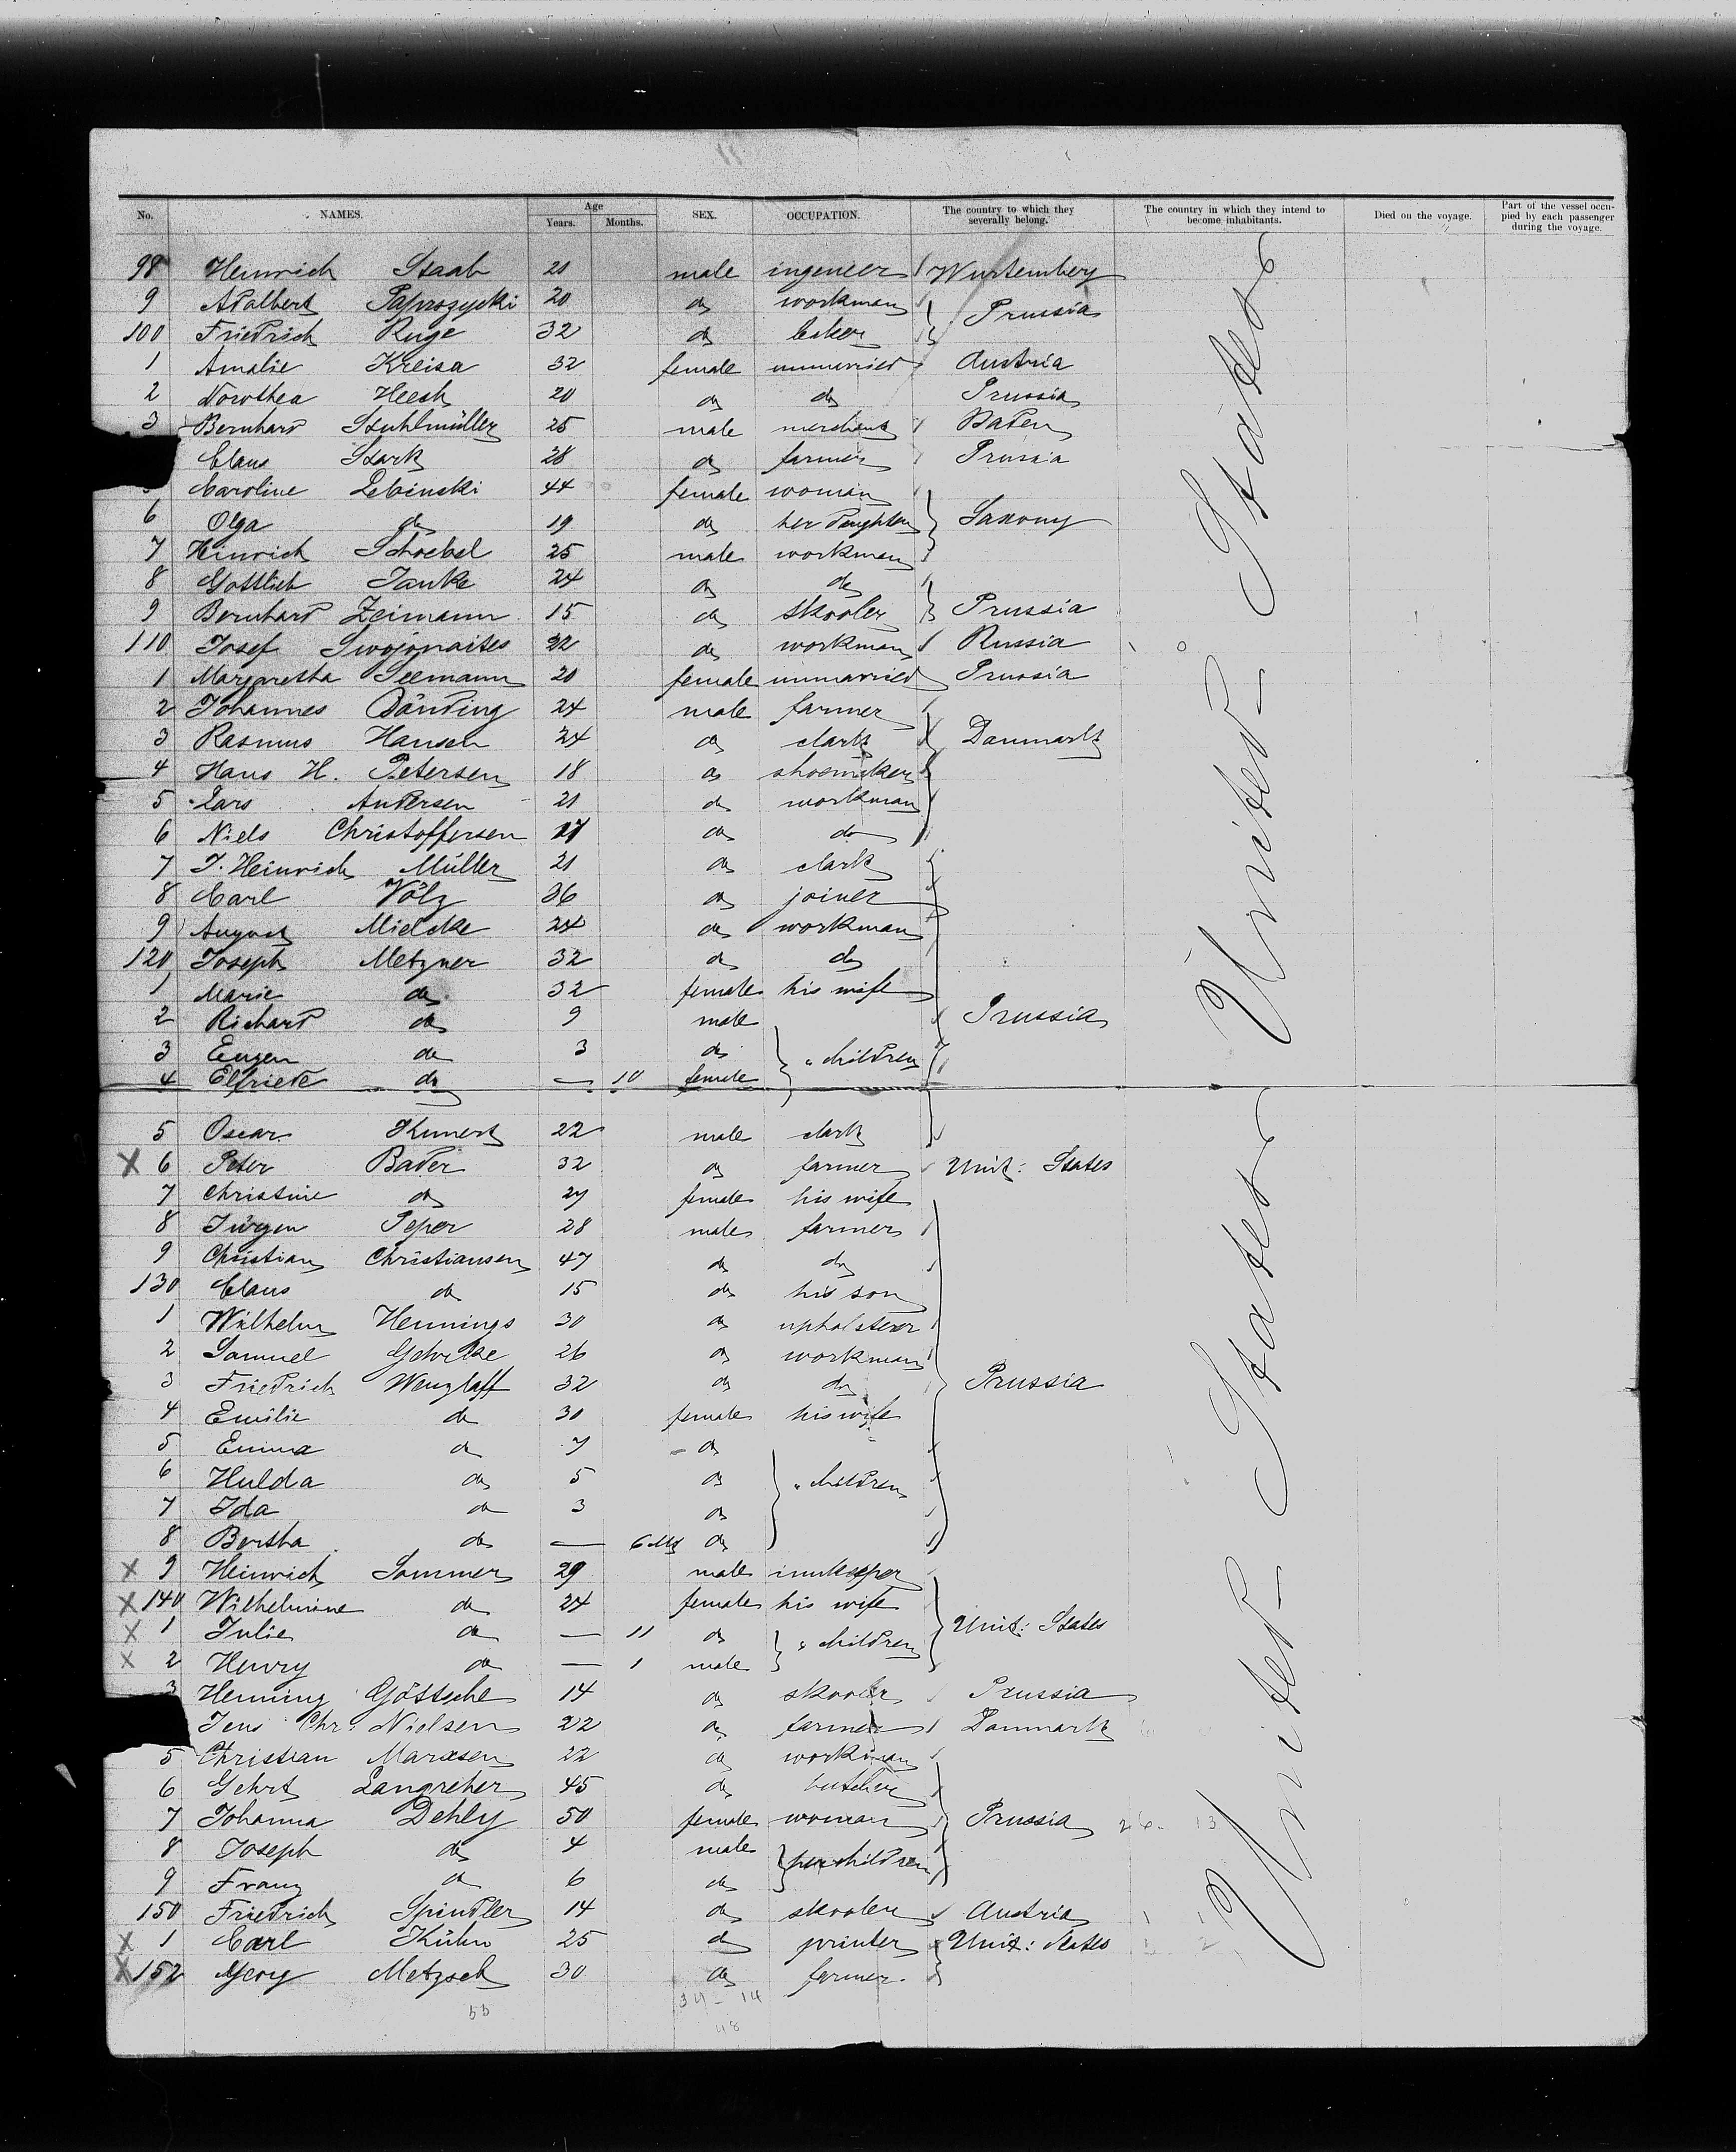 No. NAMES. Age Years. Months. SEX. OCCUPATION. The country to which they severally belong. The country in which they intend to become inhabitants. Died on the voyage. Part of the vessel occupied by each passenger during the voyage.
98 Heinrich Staab 21 male ingeneer Wurtemberg
9 Adalbert Paprozycki 20 do workman Prussia
100 Friedrich Ruge 32 do baker
1 Amalie Kreisa 32 female unmarried Austria
2 Dorothea Heesh 20 do do Prussia
3 Bernhard Stuhlmüller 25 male merchant Baden
Claus Stark 28 do farmer Prussia
Caroline Lebinski 44 female woman
6 Olga do 19 do her daughter Saxony
7 Heinrich Schoebel 25 male workman
8 Gottlieb Janke 24 do do
9 Bernhard Zeimann 15 do skooler Prussia
110 Josef Swojonaites 22 do workman Russia
1 Margaretha Seemann 20 female unmarried Prussia
2 Johannes Bänding 24 male farmer
3 Rasmus Hansen 24 do clark Danmark
4 Hans H. Petersen 18 do shoemaker
5 Lars Andersen 21 do workman
6 Niels Christoffersen 17 do do
7 J. Heinrich Müller 21 do clark
8 Carl Völz 36 do joiner
9 August Mielcke 24 do workman
120 Joseph Metzner 32 do do
1 Marie do 32 female his wife
2 Richard do 9 male Prussia
3 Eugen do 3 do " children
4 Elfriede do — 10 female
5 Oscar Kunert 22 male clark
X 6 Peter Bader 32 do farmer Unit: States
7 Christine do 27 female his wife
8 Jürgen Peper 28 male farmer
9 Christian Christiansen 47 do do
130 Claus do 15 do his son
1 Wilhelm Hennings 30 do upholsterer
2 Samuel Gehrke 26 do workman
3 Friedrich Wenzlaff 32 do do Prussia
4 Emilie do 30 female his wife
5 Emma do 7 do
6 Hulda do 5 do " children
7 Ida do 3 do
8 Bertha do — 6 do
X 9 Heinrich Sommer 29 male innkeeper
X 140 Wilhelmine do 24 female his wife
X 1 Julie do — 11 do " children Unit: States
X 2 Henry do — 1 male
3 Henning Göttsche 14 do skooler Prussia
Jens Chr. Nielsen 22 do farmer Danmark
5 Christian Marxsen 22 do workman
6 Gehrt Langreher 45 do butcher
7 Johanna Dehly 50 female woman Prussia 26. 13
8 Joseph do 4 male her children
9 Franz do 6 do
150 Friedrich Spindler 14 do skooler Austria
X 1 Carl Kühn 25 do printer Unit: States
X 152 Georg Metzsch 30 do farmer
55 34 - 14
48
United States
United States